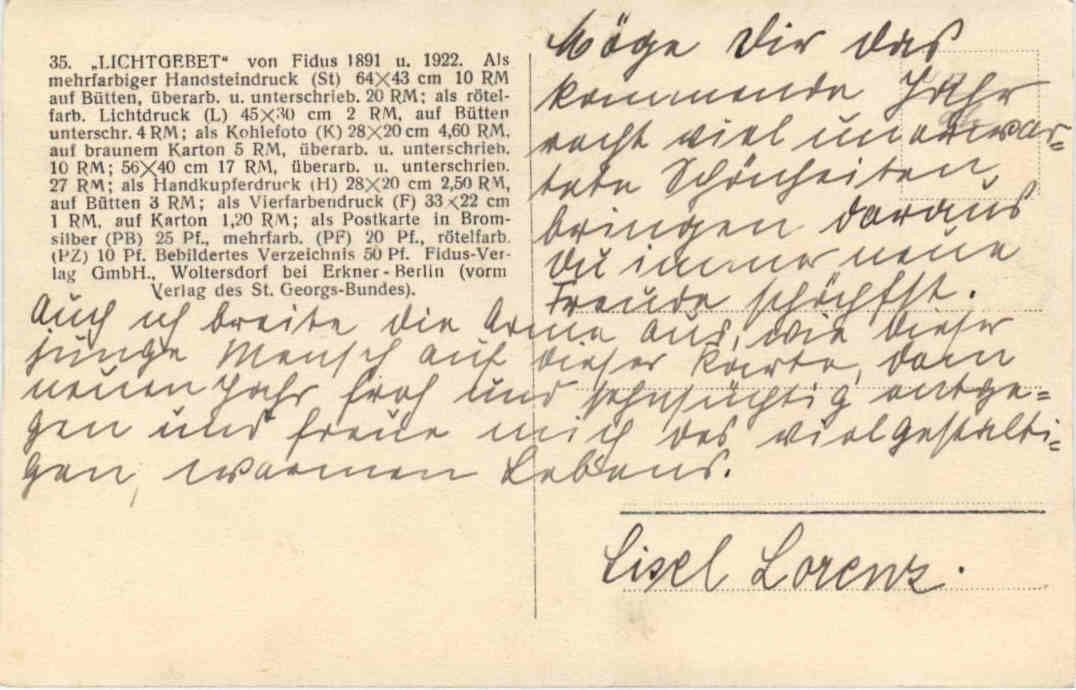 35. „LICHTGEBET“ von Fidus 1891 u. 1922. Als
mehrfarbiger Handsteindruck (St) 64×43 cm 10 RM
auf Bütten, überarb. u. unterschrieb. 20 RM; als rötel-
farb. Lichtdruck (L) 45×30 cm 2 RM, auf Bütten
unterschr. 4 RM; als Kohlefoto (K) 28×20 cm 4,60 RM,
auf braunem Karton 5 RM, überarb. u. unterschrieb.
10 RM; 56×40 cm 17 RM, überarb. u. unterschrieb.
27 RM; als Handkupferdruck (H) 28×20 cm 2,50 RM,
auf Bütten 3 RM; als Vierfarbendruck (F) 33×22 cm
1 RM, auf Karton 1,20 RM; als Postkarte in Brom-
silber (PB) 25 Pf., mehrfarb. (PF) 20 Pf., rötelfarb.
(PZ) 10 Pf. Bebildertes Verzeichnis 50 Pf. Fidus-Ver-
lag GmbH., Woltersdorf bei Erkner-Berlin (vorm
Verlag des St. Georgs-Bundes).
Möge Dir das
kommende Jahr
recht viel unerwar=
tete Schönheiten
bringen daraus
Du immer neue
Freude schöpfst.
Auch ich breite die Arme aus, wie dieser
junge Mensch auf dieser Karte, dem
neuen Jahr froh und sehnsüchtig entge=
gen und freue mich des vielgestalti=
gen, warmen Lebens.
Lisel Lorenz.